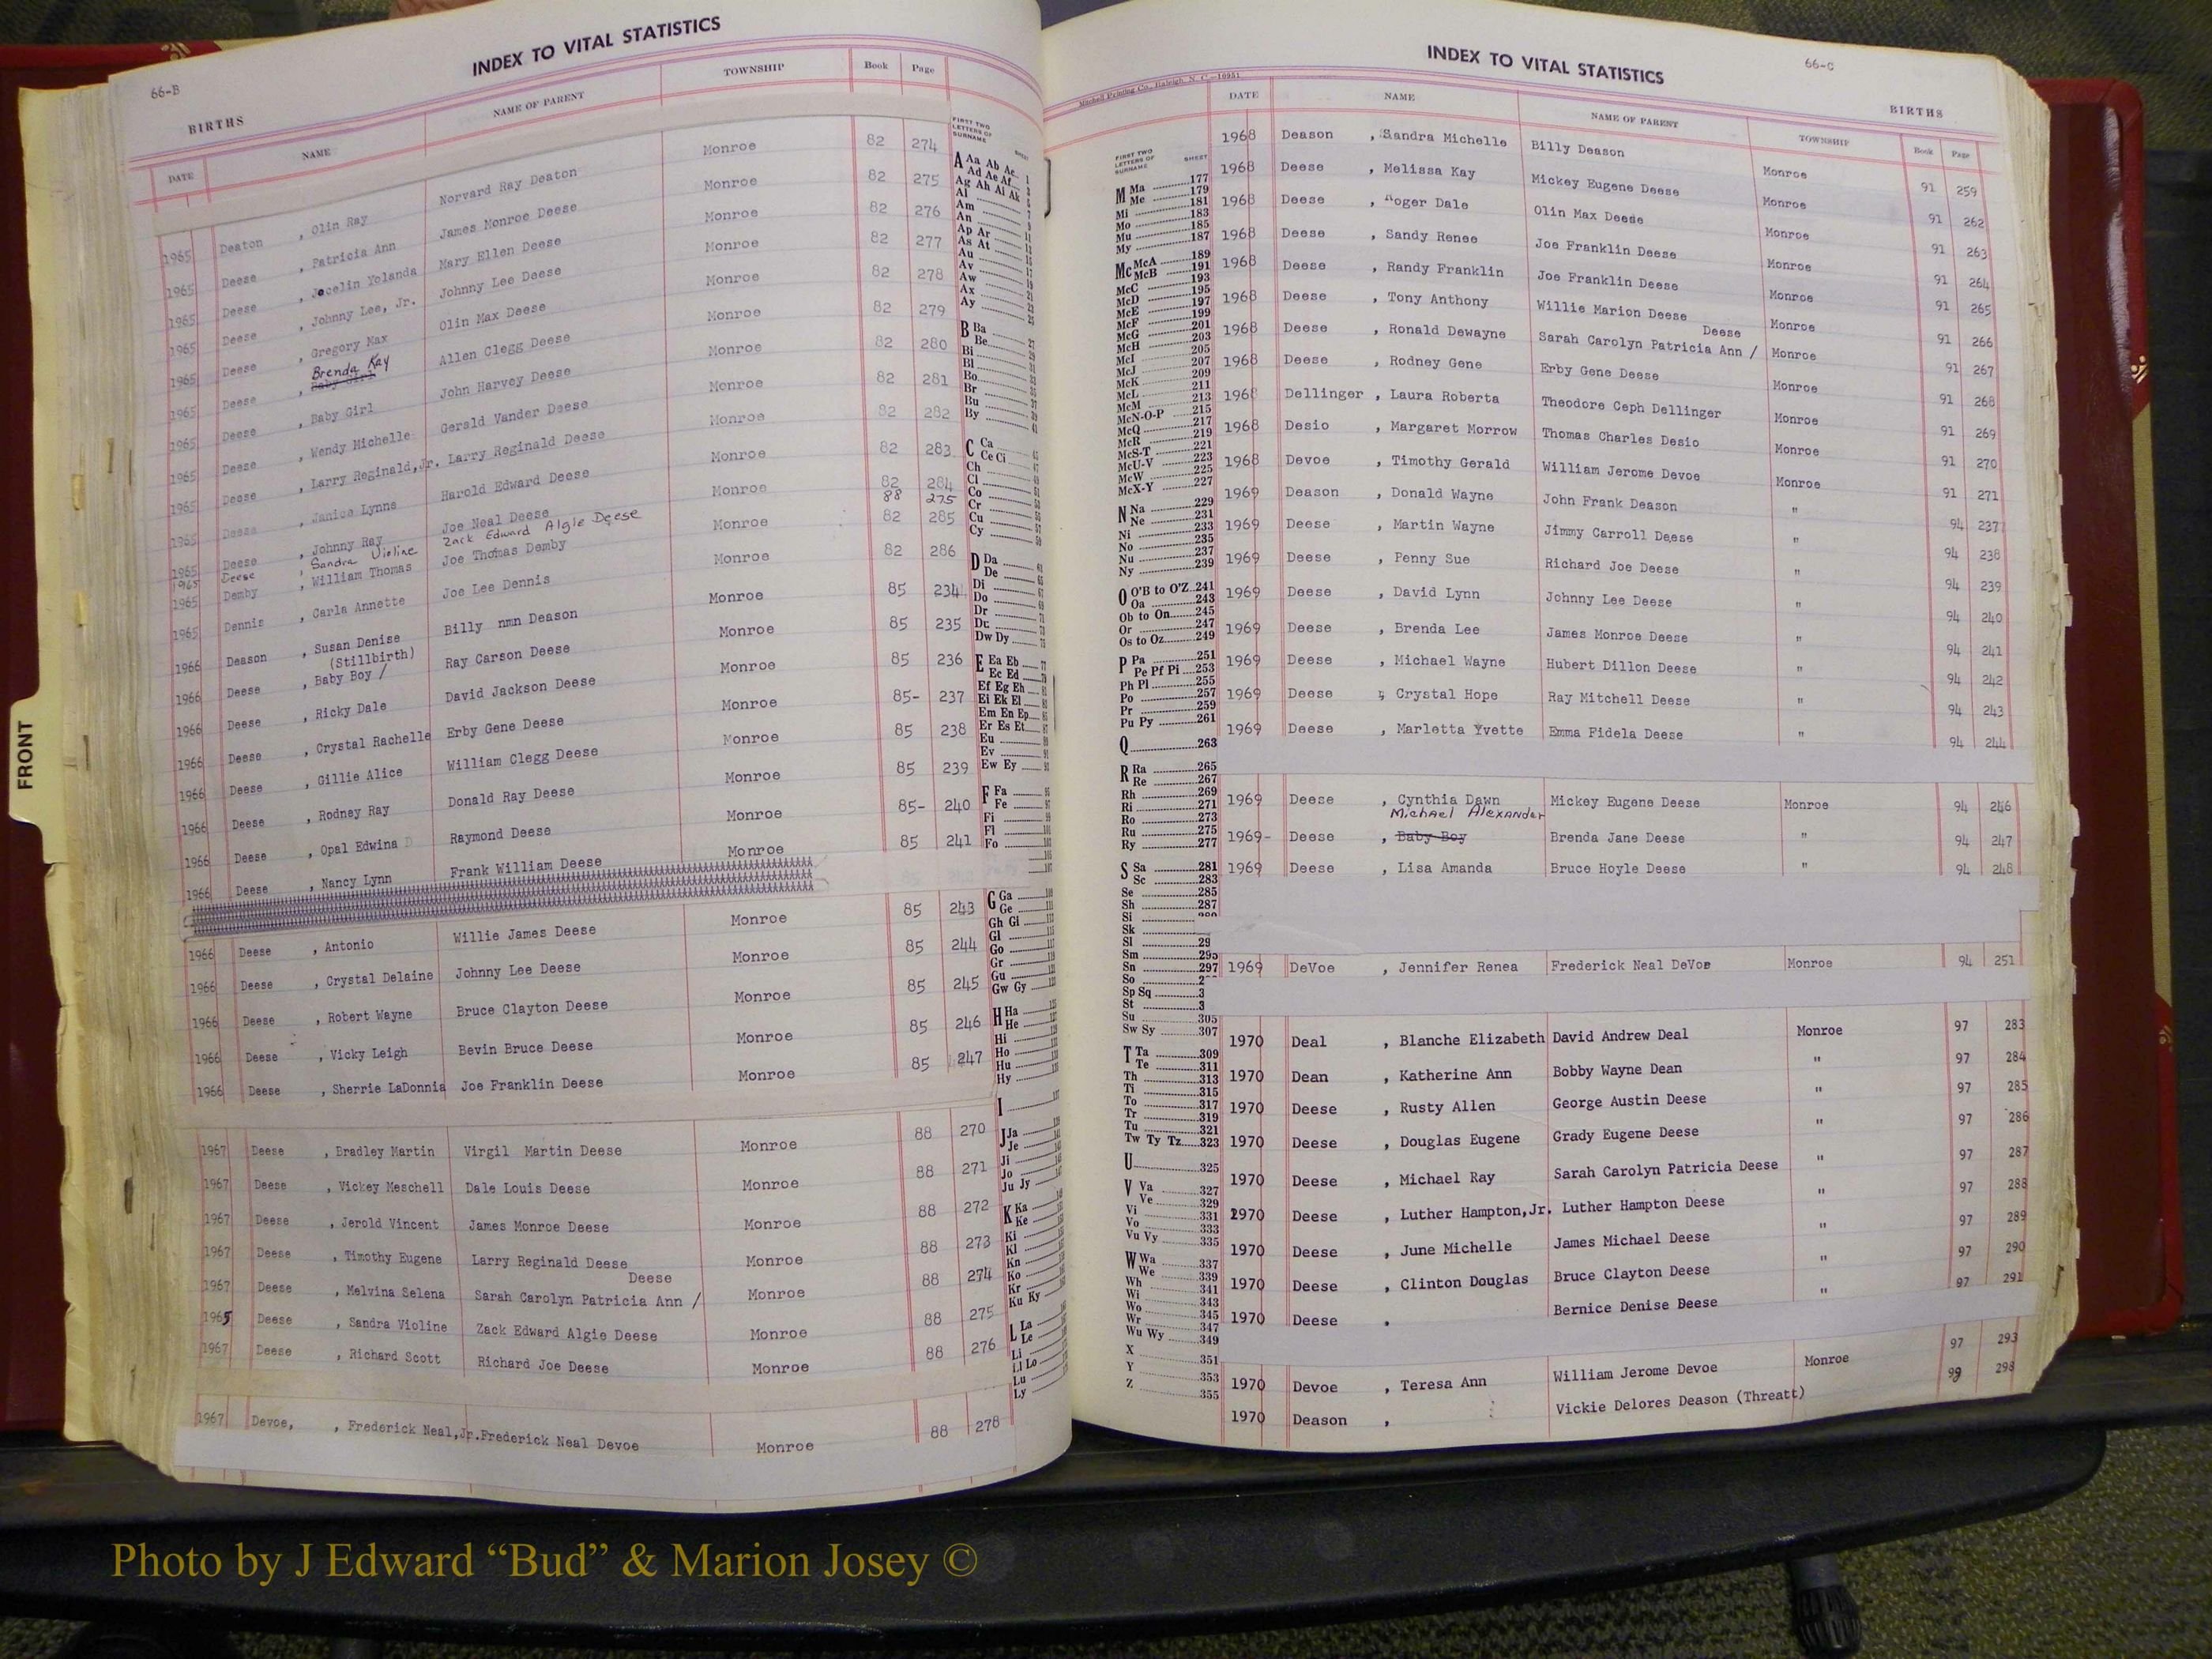 INDEX TO VITAL STATISTICS
66-B
BIRTHS
DATE NAME NAME OF PARENT TOWNSHIP Book Page
1965 Deaton , Olin Ray Norvard Ray Deaton Monroe 82 274
1965 Deese , Patricia Ann James Monroe Deese Monroe 82 275
1965 Deese , Jocelin Yolanda Mary Ellen Deese Monroe 82 276
1965 Deese , Johnny Lee, Jr. Johnny Lee Deese Monroe 82 277
1965 Deese , Gregory Max Olin Max Deese Monroe 82 278
Brenda Kay
1965 Deese , Baby Girl Allen Clegg Deese Monroe 82 279
1965 Deese , Baby Girl John Harvey Deese Monroe 82 280
1965 Deese , Wendy Michelle Gerald Vander Deese Monroe 82 281
1965 Deese , Larry Reginald,Jr. Larry Reginald Deese Monroe 82 282
1965 Deese , Janice Lynne Harold Edward Deese Monroe 82 283
1965 Deese , Johnny Ray Joe Neal Deese Monroe 82 284
1965 Deese , Sandra Violine Zack Edward Algie Deese 88 275
1965 Demby , William Thomas Joe Thomas Demby Monroe 82 285
1965 Dennis , Carla Annette Joe Lee Dennis Monroe 82 286
1966 Deason , Susan Denise Billy nmn Deason Monroe 85 234
(Stillbirth)
1966 Deese , Baby Boy / Ray Carson Deese Monroe 85 235
1966 Deese , Ricky Dale David Jackson Deese Monroe 85 236
1966 Deese , Crystal Rachelle Erby Gene Deese Monroe 85- 237
1966 Deese , Gillie Alice William Clegg Deese Monroe 85 238
1966 Deese , Rodney Ray Donald Ray Deese Monroe 85 239
1966 Deese , Opal Edwina D Raymond Deese Monroe 85- 240
1966 Deese , Nancy Lynn Frank William Deese Monroe 85 241
1966 Deese , Antonio Willie James Deese Monroe 85 243
1966 Deese , Crystal Delaine Johnny Lee Deese Monroe 85 244
1966 Deese , Robert Wayne Bruce Clayton Deese Monroe 85 245
1966 Deese , Vicky Leigh Bevin Bruce Deese Monroe 85 246
1966 Deese , Sherrie LaDonnia Joe Franklin Deese Monroe 85 247
1967 Deese , Bradley Martin Virgil Martin Deese Monroe 88 270
1967 Deese , Vickey Meschell Dale Louis Deese Monroe 88 271
1967 Deese , Jerold Vincent James Monroe Deese Monroe 88 272
1967 Deese , Timothy Eugene Larry Reginald Deese Monroe 88 273
Deese
1967 Deese , Melvina Selena Sarah Carolyn Patricia Ann / Monroe 88 274
1965 Deese , Sandra Violine Zack Edward Algie Deese Monroe 88 275
1967 Deese , Richard Scott Richard Joe Deese Monroe 88 276
1967 Devoe, , Frederick Neal,Jr. Frederick Neal Devoe Monroe 88 278
FIRST TWO
LETTERS OF
SURNAME
SHEET
A Aa Ab Ac
Ad Ae Af
Ag Ah Ai Ak
Al
Am
An
Ap Ar
As At
Au
Av
Aw
Ax
Ay
B Ba
Be
Bi
Bl
Bo
Br
Bu
By
C Ca
Ce Ci
Ch
Cl
Co
Cr
Cu
Cy
D Da
De
Di
Do
Dr
Du
Dw Dy
E Ea Eb
Ec Ed
Ef Eg Eh
Ei Ek El
Em En Ep
Er Es Et
Eu
Ev
Ew Ey
F Fa
Fe
Fi
Fl
Fo
G Ga
Ge
Gh Gi
Gl
Go
Gr
Gu
Gw Gy
H Ha
He
Hi
Ho
Hu
Hy
I
J Ja
Je
Ji
Jo
Ju Jy
K Ka
Ke
Ki
Kl
Kn
Ko
Kr
Ku Ky
L La
Le
Li
Ll Lo
Lu
Ly
FRONT
INDEX TO VITAL STATISTICS
66-C
BIRTHS
Mitchell Printing Co., Raleigh, N. C.—10951
DATE NAME NAME OF PARENT TOWNSHIP Book Page
FIRST TWO
LETTERS OF
SURNAME
SHEET
M Ma 177
Me 179
Mi 181
Mo 183
Mu 185
My 187
Mc McA 189
McB 191
McC 193
McD 195
McE 197
McF 199
McG 201
McH 203
McI 205
McJ 207
McK 209
McL 211
McM 213
McN-O-P 215
McQ 217
McR 219
McS-T 221
McU-V 223
McW 225
McX-Y 227
N Na 229
Ne 231
Ni 233
No 235
Nu 237
Ny 239
O O'B to O'Z 241
Oa 243
Ob to On 245
Or 247
Os to Oz 249
P Pa 251
Pe Pf Pi 253
Ph Pl 255
Po 257
Pr 259
Pu Py 261
Q 263
R Ra 265
Re 267
Rh 269
Ri 271
Ro 273
Ru 275
Ry 277
S Sa 281
Sc 283
Se 285
Sh 287
Si
Sk
Sl 29
Sm 295
Sn 297
So 2
Sp Sq 3
St 3
Su 305
Sw Sy 307
T Ta 309
Te 311
Th 313
Ti 315
To 317
Tr 319
Tu 321
Tw Ty Tz 323
U 325
V Va 327
Ve 329
Vi 331
Vo 333
Vu Vy 335
W Wa 337
We 339
Wh 341
Wi 343
Wo 345
Wr 347
Wu Wy 349
X 351
Y 353
Z 355
1968 Deason , Sandra Michelle Billy Deason Monroe 91 259
1968 Deese , Melissa Kay Mickey Eugene Deese Monroe 91 262
1968 Deese , Roger Dale Olin Max Deese Monroe 91 263
1968 Deese , Sandy Renee Joe Franklin Deese Monroe 91 264
1968 Deese , Randy Franklin Joe Franklin Deese Monroe 91 265
1968 Deese , Tony Anthony Willie Marion Deese Monroe 91 266
Deese
1968 Deese , Ronald Dewayne Sarah Carolyn Patricia Ann / Monroe 91 267
1968 Deese , Rodney Gene Erby Gene Deese Monroe 91 268
1968 Dellinger , Laura Roberta Theodore Ceph Dellinger Monroe 91 269
1968 Desio , Margaret Morrow Thomas Charles Desio Monroe 91 270
1968 Devoe , Timothy Gerald William Jerome Devoe Monroe 91 271
1969 Deason , Donald Wayne John Frank Deason " 94 237
1969 Deese , Martin Wayne Jimmy Carroll Deese " 94 238
1969 Deese , Penny Sue Richard Joe Deese " 94 239
1969 Deese , David Lynn Johnny Lee Deese " 94 240
1969 Deese , Brenda Lee James Monroe Deese " 94 241
1969 Deese , Michael Wayne Hubert Dillon Deese " 94 242
1969 Deese , Crystal Hope Ray Mitchell Deese " 94 243
1969 Deese , Marletta Yvette Emma Fidela Deese " 94 244
1969 Deese , Cynthia Dawn Mickey Eugene Deese Monroe 94 246
Michael Alexander
1969- Deese , Baby Boy Brenda Jane Deese " 94 247
1969 Deese , Lisa Amanda Bruce Hoyle Deese " 94 248
1969 DeVoe , Jennifer Renea Frederick Neal DeVoe Monroe 94 251
1970 Deal , Blanche Elizabeth David Andrew Deal Monroe 97 283
1970 Dean , Katherine Ann Bobby Wayne Dean " 97 284
1970 Deese , Rusty Allen George Austin Deese " 97 285
1970 Deese , Douglas Eugene Grady Eugene Deese " 97 286
1970 Deese , Michael Ray Sarah Carolyn Patricia Deese " 97 287
1970 Deese , Luther Hampton,Jr. Luther Hampton Deese " 97 288
1970 Deese , June Michelle James Michael Deese " 97 289
1970 Deese , Clinton Douglas Bruce Clayton Deese " 97 290
1970 Deese , Bernice Denise Deese " 97 291
1970 Devoe , Teresa Ann William Jerome Devoe Monroe 97 293
1970 Deason , Vickie Delores Deason (Threatt) 99 298
Photo by J Edward “Bud” & Marion Josey ©